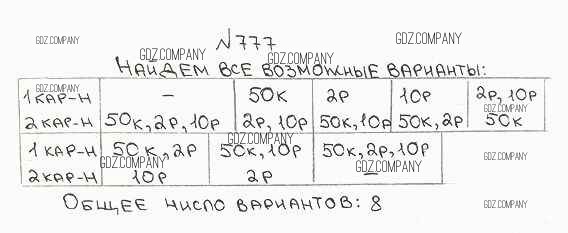 №777
GDZ.COMPANY GDZ.COMPANY GDZ.COMPANY GDZ.COMPANY
НАЙДЕМ ВСЕ ВОЗМОЖНЫЕ ВАРИАНТЫ:
GDZ.COMPANY
1 КАР-Н — 50К 2Р 10Р 2Р, 10Р
GDZ.COMPANY
2 КАР-Н 50К, 2Р, 10Р 2Р, 10Р 50К, 10Р 50К, 2Р 50К
GDZ.COMPANY
1 КАР-Н 50К, 2Р 50К, 10Р 50К, 2Р, 10Р
GDZ.COMPANY GDZ.COMPANY GDZ.COMPANY
2 КАР-Н 10Р 2Р —
ОБЩЕЕ ЧИСЛО ВАРИАНТОВ: 8
GDZ.COMPANY